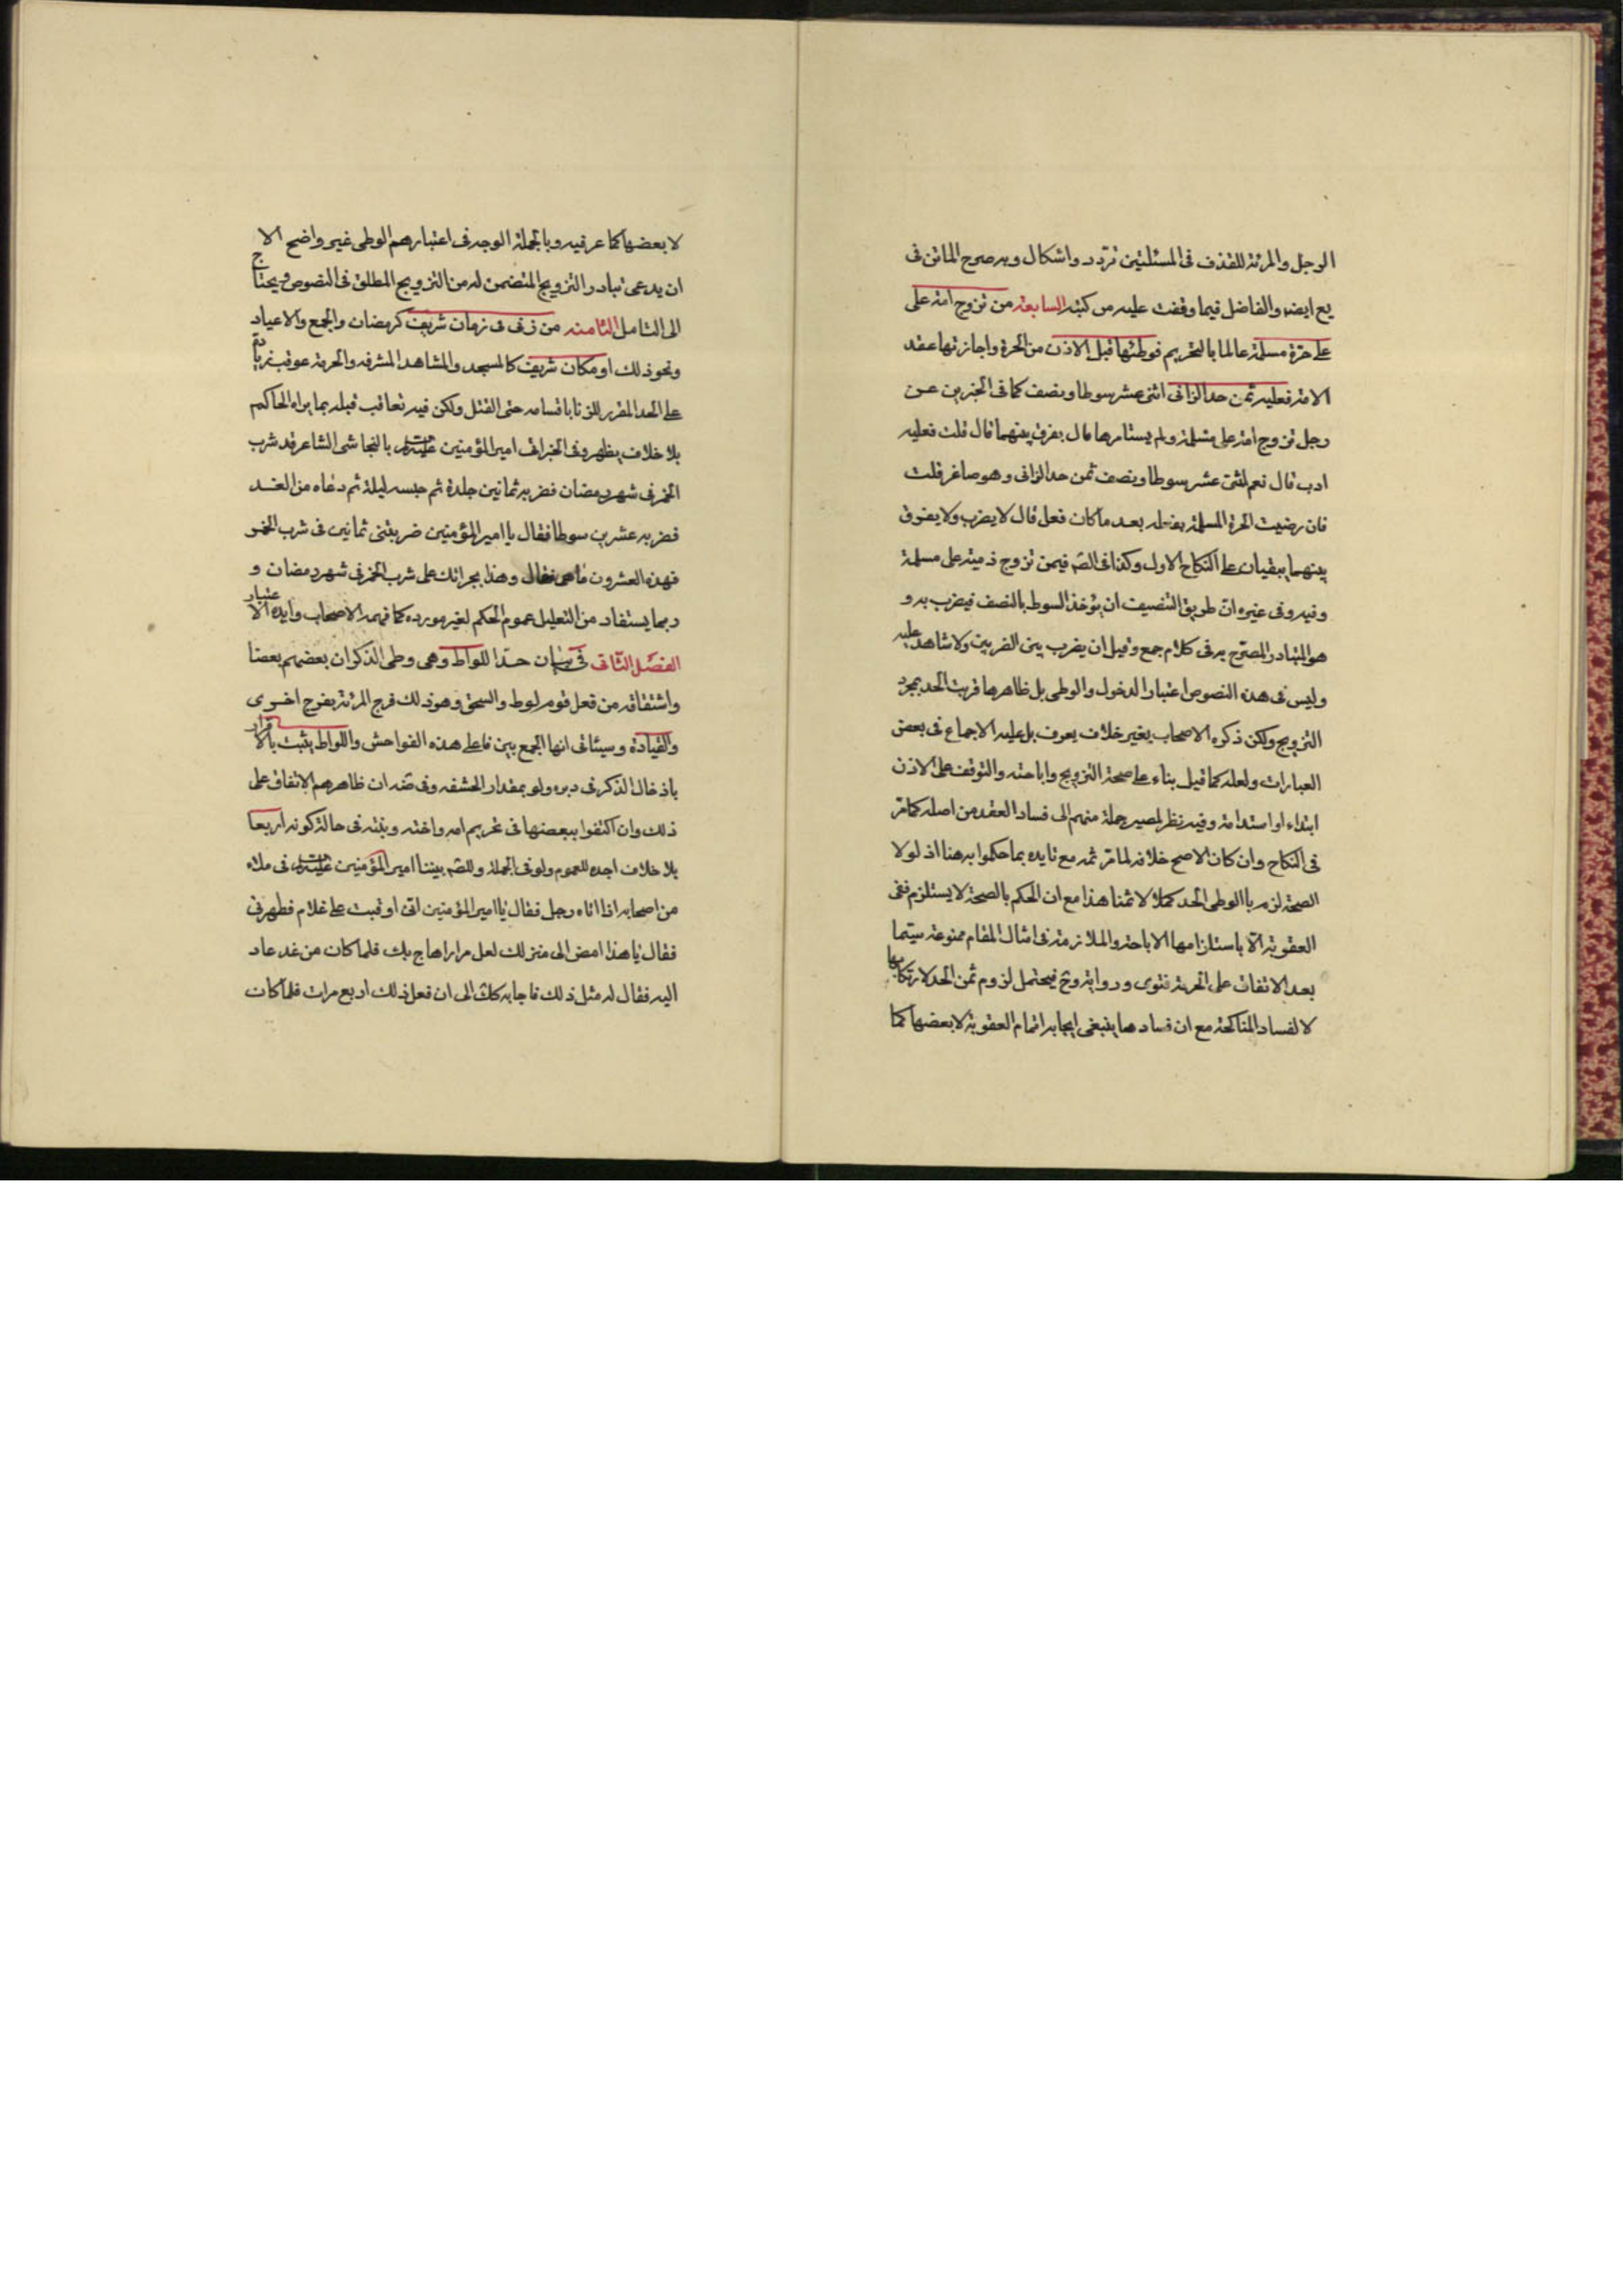 الرجل والمرئة للقذف فى المسئلتين تردد واشكال وبه صرح الماتن فى
يع ايضا والفاضل فيما وقفت عليه من كتبه السابعة من تزوج امة على
على حرة مسلمة عالما بالتحريم فوطئها قبل الاذن من الحرة واجازتها عقد
الامة فعليه ثمن حد الزانى اثنى عشر سوطا ونصف كما فى الخبرين عن
رجل تزوج امة على مسلمة ولم يستامرها قال يفرق بينهما قال قلت فعليه
ادب قال نعم اثنى عشر سوطا ونصف ثمن حد الزانى وهو صاغر قلت
فان رضيت الحرة المسلمة بفعله بعد ما كان فعل قال لا يضرب ولا يفرق
بينهما يبقيان على النكاح الاول وكذا فى الصّ فيمن تزوج ذمية على مسلمة
وفيه وفى غيره ان طريق التنصيف ان يؤخذ السوط بالنصف فيضرب به و
هو المتبادر المصرّح به فى كلام جمع وقيل ان يضرب بين الضربين ولا شاهد عليه
وليس فى هذه النصوص اعتبار الدخول والوطى بل ظاهرها ترتب الحد بمجرد
التزويج ولكن ذكره الاصحاب بغير خلاف يعرف بل عليه الاجماع فى بعض
العبارات ولعله كما قيل بناء على صحة التزويج واباحته والتوقف على الاذن
ابتداء او استدامة وفيه نظر لمصير جملة منهم الى فساد العقد من اصله كما مرّ
فى النكاح وان كان الاصح خلافه لما مرّ ثمه مع تايده بما حكموا به هنا اذ لولا
الصحة لزم بالوطى الحد كملا لا ثمنا هذا مع ان الحكم بالصحة لا يستلزم نفى
العقوبة الّا باستلزامها الاباحة والملازمة فى امثال المقام ممنوعة سيّما
بعد الاتفاق على الحرمة فتوى ورواية وح فيحتمل لزوم ثمن الحد لارتكابها
لا لفساد المناكحة مع ان فسادها ينبغى ايجابه اتمام العقوبة لا بعضها كما
لا بعضها كما عرفيه وبالجملة الوجه فى اعتبارهم الوطى غير واضح الا
ان يدعى تبادر التزويج المتضمن له من التزويج المطلق فى النصوص ويحتاج
الى التامل الثامنه من زنى فى زمان شريف كرمضان والجمع والاعياد
ونحو ذلك او مكان شريف كالمسجد والمشاهد المشرفه والحرمة عوقب زيادة
على الحد المقرر للزنا باقسامه حتى القتل ولكن فيه تعاقب قبله بما يراه الحاكم
بلا خلاف يظهر وفى الخبر اتى امير المؤمنين عليه السلم بالنجاشى الشاعر قد شرب
الخمر فى شهر رمضان فضربه ثمانين جلدة ثم حبسه ليلة ثم دعاه من الغد
فضربه عشرين سوطا فقال يا امير المؤمنين ضربتنى ثمانين فى شرب الخمر
فهذه العشرون ما هى فقال وهذا بجرائتك على شرب الخمر فى شهر رمضان و
ربما يستفاد من التعليل عموم الحكم لغير مورده كما فهمه الاصحاب وايده الاعتبار
الفصل الثانى فى بيان حدّ اللواط وهى وطى الذكران بعضهم بعضا
واشتقاقه من فعل قوم لوط والسحق وهو ذلك فرج المرئة بفرج اخرى
والقيادة وسيئاتى انها الجمع بين فاعلى هذه الفواحش واللواط يثبت بالاقرار
باذخال الذكر فى دبره ولو بمقدار الحشفه وفى ضه ان ظاهرهم الاتفاق على
ذلك وان اكتفوا ببعضها فى تحريم امه واخته وبنته فى حالة كونه اربعا
بلا خلاف اجده للعموم ولو فى الجملة وللصّ بيننا امير المؤمنين عليه السلم فى ملاء
من اصحابه اذا اتاه رجل فقال يا امير المؤمنين انى اوقبت على غلام فطهرنى
فقال يا هذا امض الى منزلك لعل مرارا هاج بك فلما كان من غد عاد
اليه فقال له مثل ذلك فاجابه كك الى ان فعل ذلك اربع مرات فلما كان